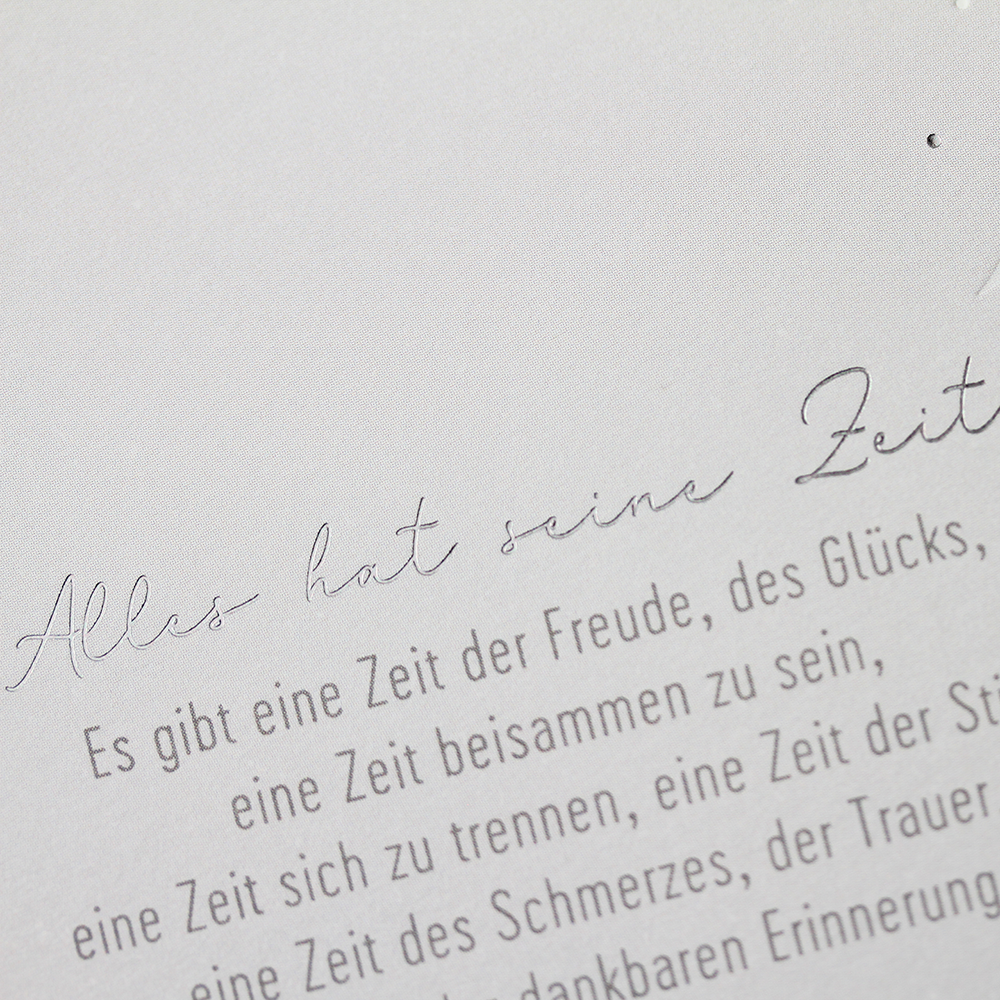 Alles hat seine Zeit
Es gibt eine Zeit der Freude, des Glücks,
eine Zeit beisammen zu sein,
eine Zeit sich zu trennen, eine Zeit der
eine Zeit des Schmerzes, der Trauer
dankbaren Erinnerung